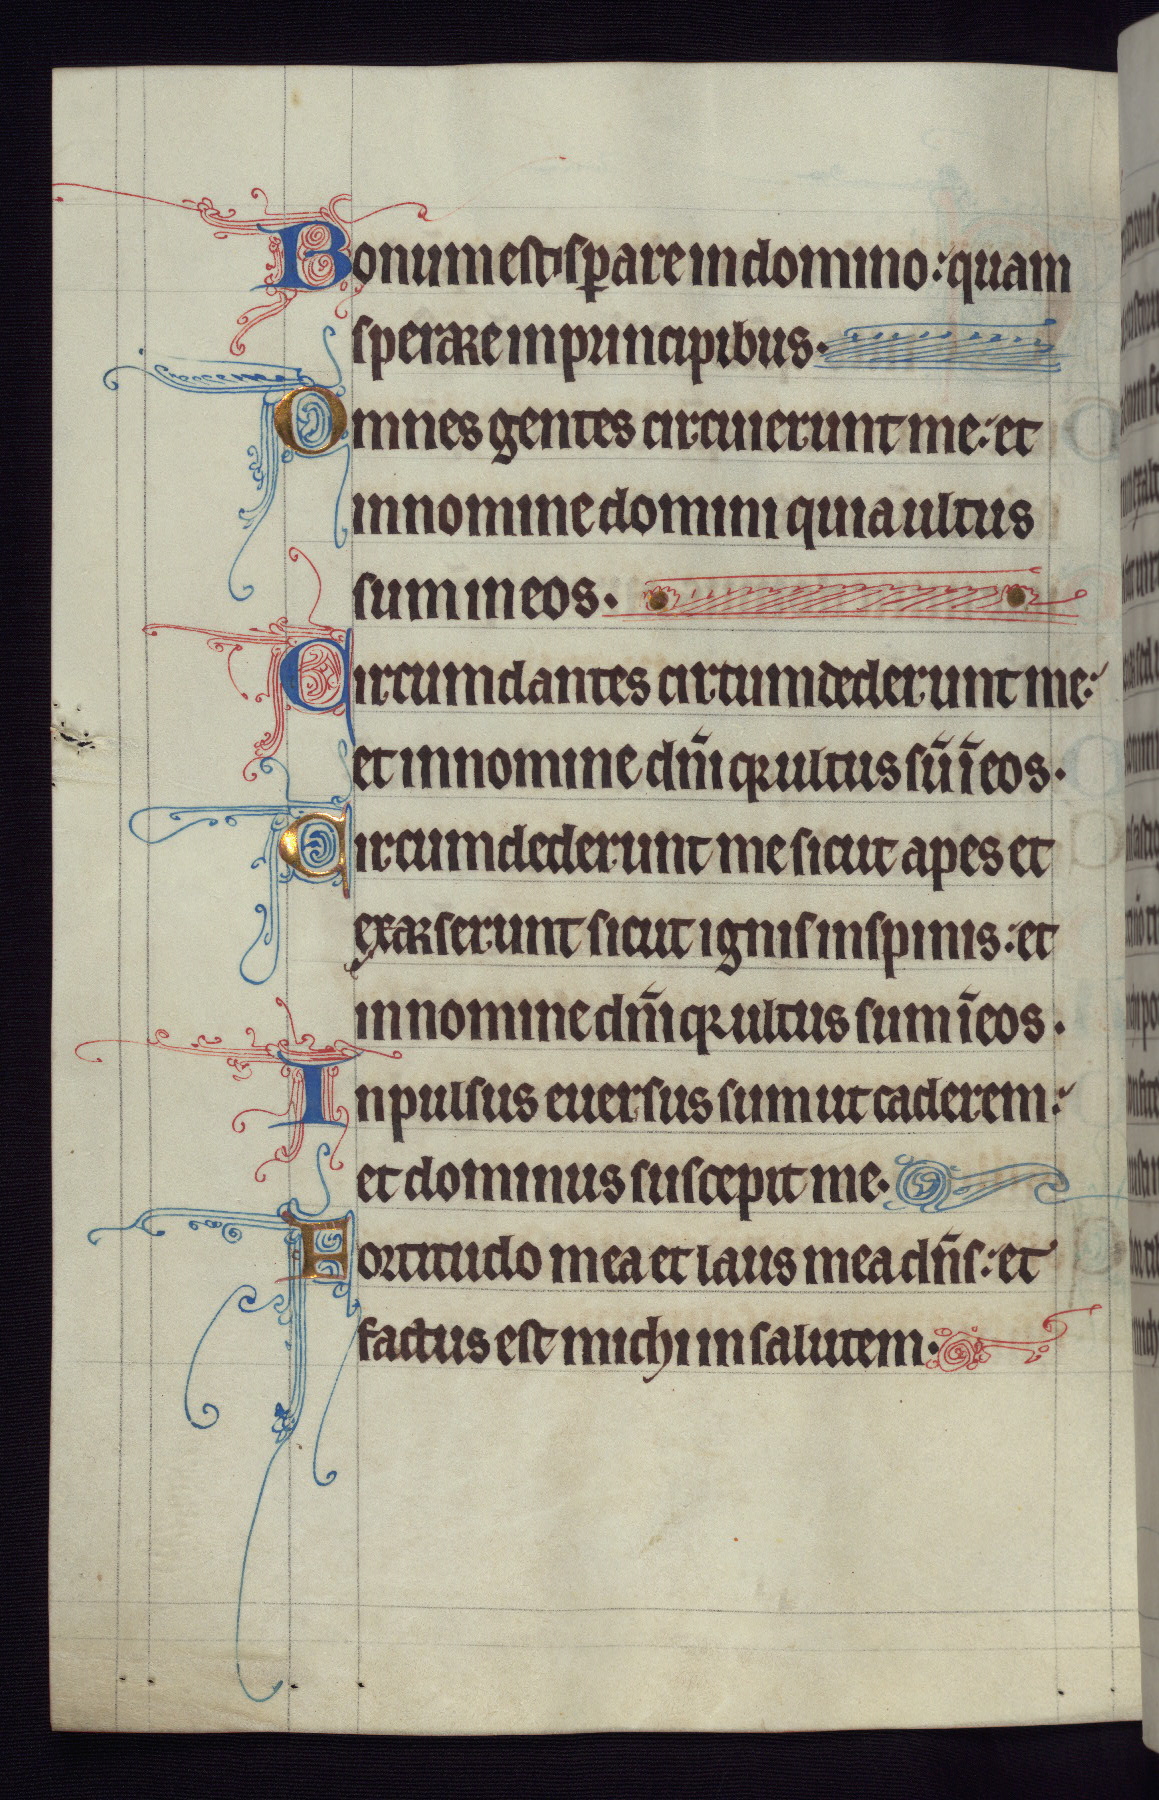 Bonum est sꝑare in domino: quam
sperare in principibus.
Omnes gentes circuierunt me: et
in nomine domini quia ultus
sum in eos.
Circumdantes circumdederunt me:
et in nomine dn̄i qꝛ ultus sū ī eos.
Circumdederunt me sicut apes et
exarserunt sicut ignis in spinis: et
in nomine dn̄i qꝛ ultus sum ī eos.
Inpulsus euersus sum ut caderem:
et dominus suscepit me.
Fortitudo mea et laus mea dn̄s: et
factus est michi in salutem.